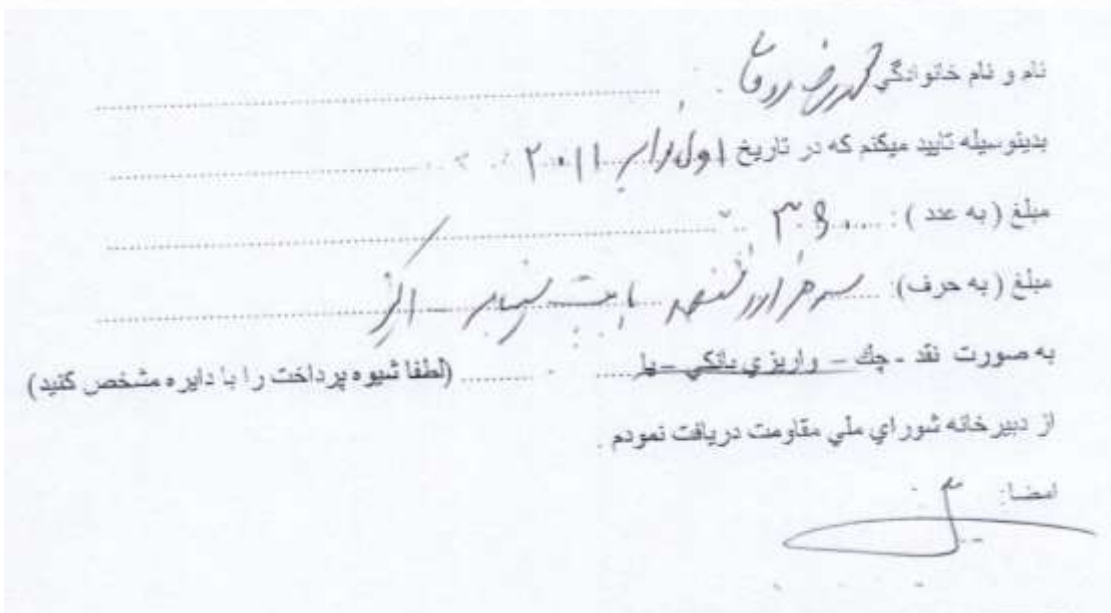 نام و نام خانوادگي محمدرضا روحانی
بدينوسيله تاييد ميكنم كه در تاريخ اول نوامبر ۲۰۱۱
مبلغ ( به عدد ) :
مبلغ ( به حرف): سه هزار و ششصد بابت سپتامبر - اکتبر
به صورت نقد - چك - واريزي بانكي - يا (لطفا شيوه پرداخت را با دايره مشخص كنيد)
از دبيرخانه شوراي ملي مقاومت دريافت نمودم .
امضا: